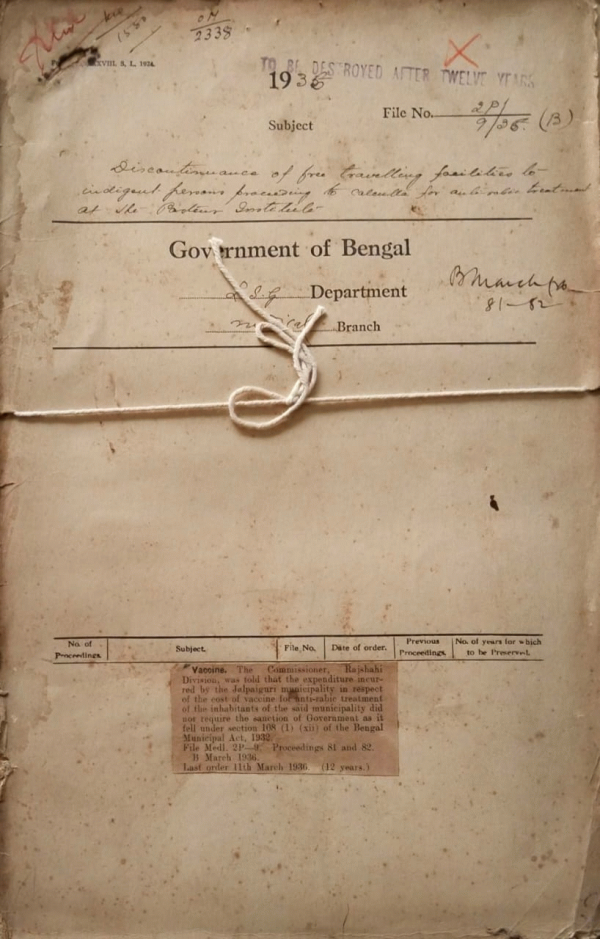 OM
2338
XVIII. S. L. 1934.
TO BE DESTROYED AFTER TWELVE YEARS
1935
File No. 2P/
9/35 (B)
Subject
Discontinuance of free travelling facilities to
indigent persons proceeding to Calcutta for anti-rabic treatment
at the Pasteur Institute
Government of Bengal
L.S.G Department
B March
81-82
Medical Branch
No. of Proceedings. Subject. File No. Date of order. Previous Proceedings. No. of years for which to be Preserved.
Vaccine. The Commissioner, Rajshahi
Division, was told that the expenditure incur-
red by the Jalpaiguri municipality in respect
of the cost of vaccine for anti-rabic treatment
of the inhabitants of the said municipality did
not require the sanction of Government as it
fell under section 108 (1) (xii) of the Bengal
Municipal Act, 1932.
File Medl. 2P—9. Proceedings 81 and 82.
B March 1936.
Last order 11th March 1936. (12 years.)